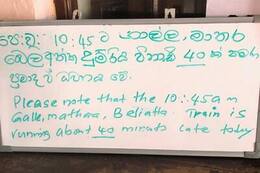 පෙ:ව: 10:45 ට ගාල්ල, මාතර
බෙලිඅත්ත දුම්රිය විනාඩි 40 ක් පමණ
ප්‍රමාද වී ධාවනය වේ.
Please note that the 10:45am
Galle, mathara, Beliatta. Train is
running about 40 minuts late today